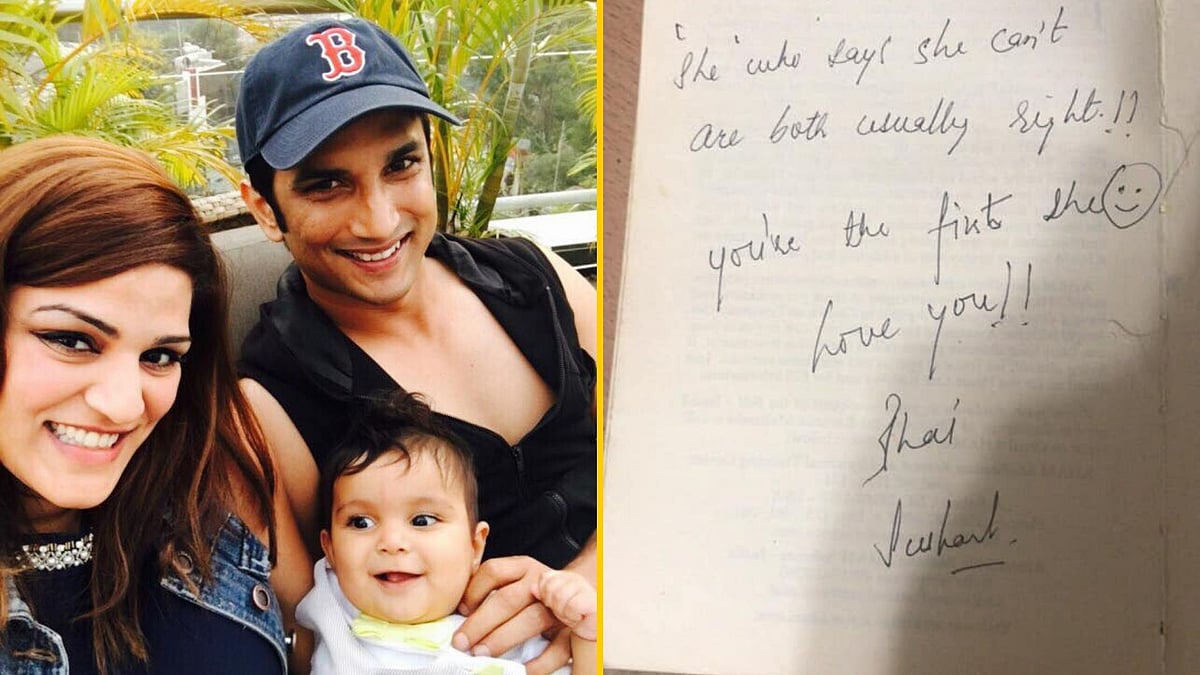 B
'She' who says she can't
are both usually right!!
you're the first she
Love you!!
Bhai
Sushant.